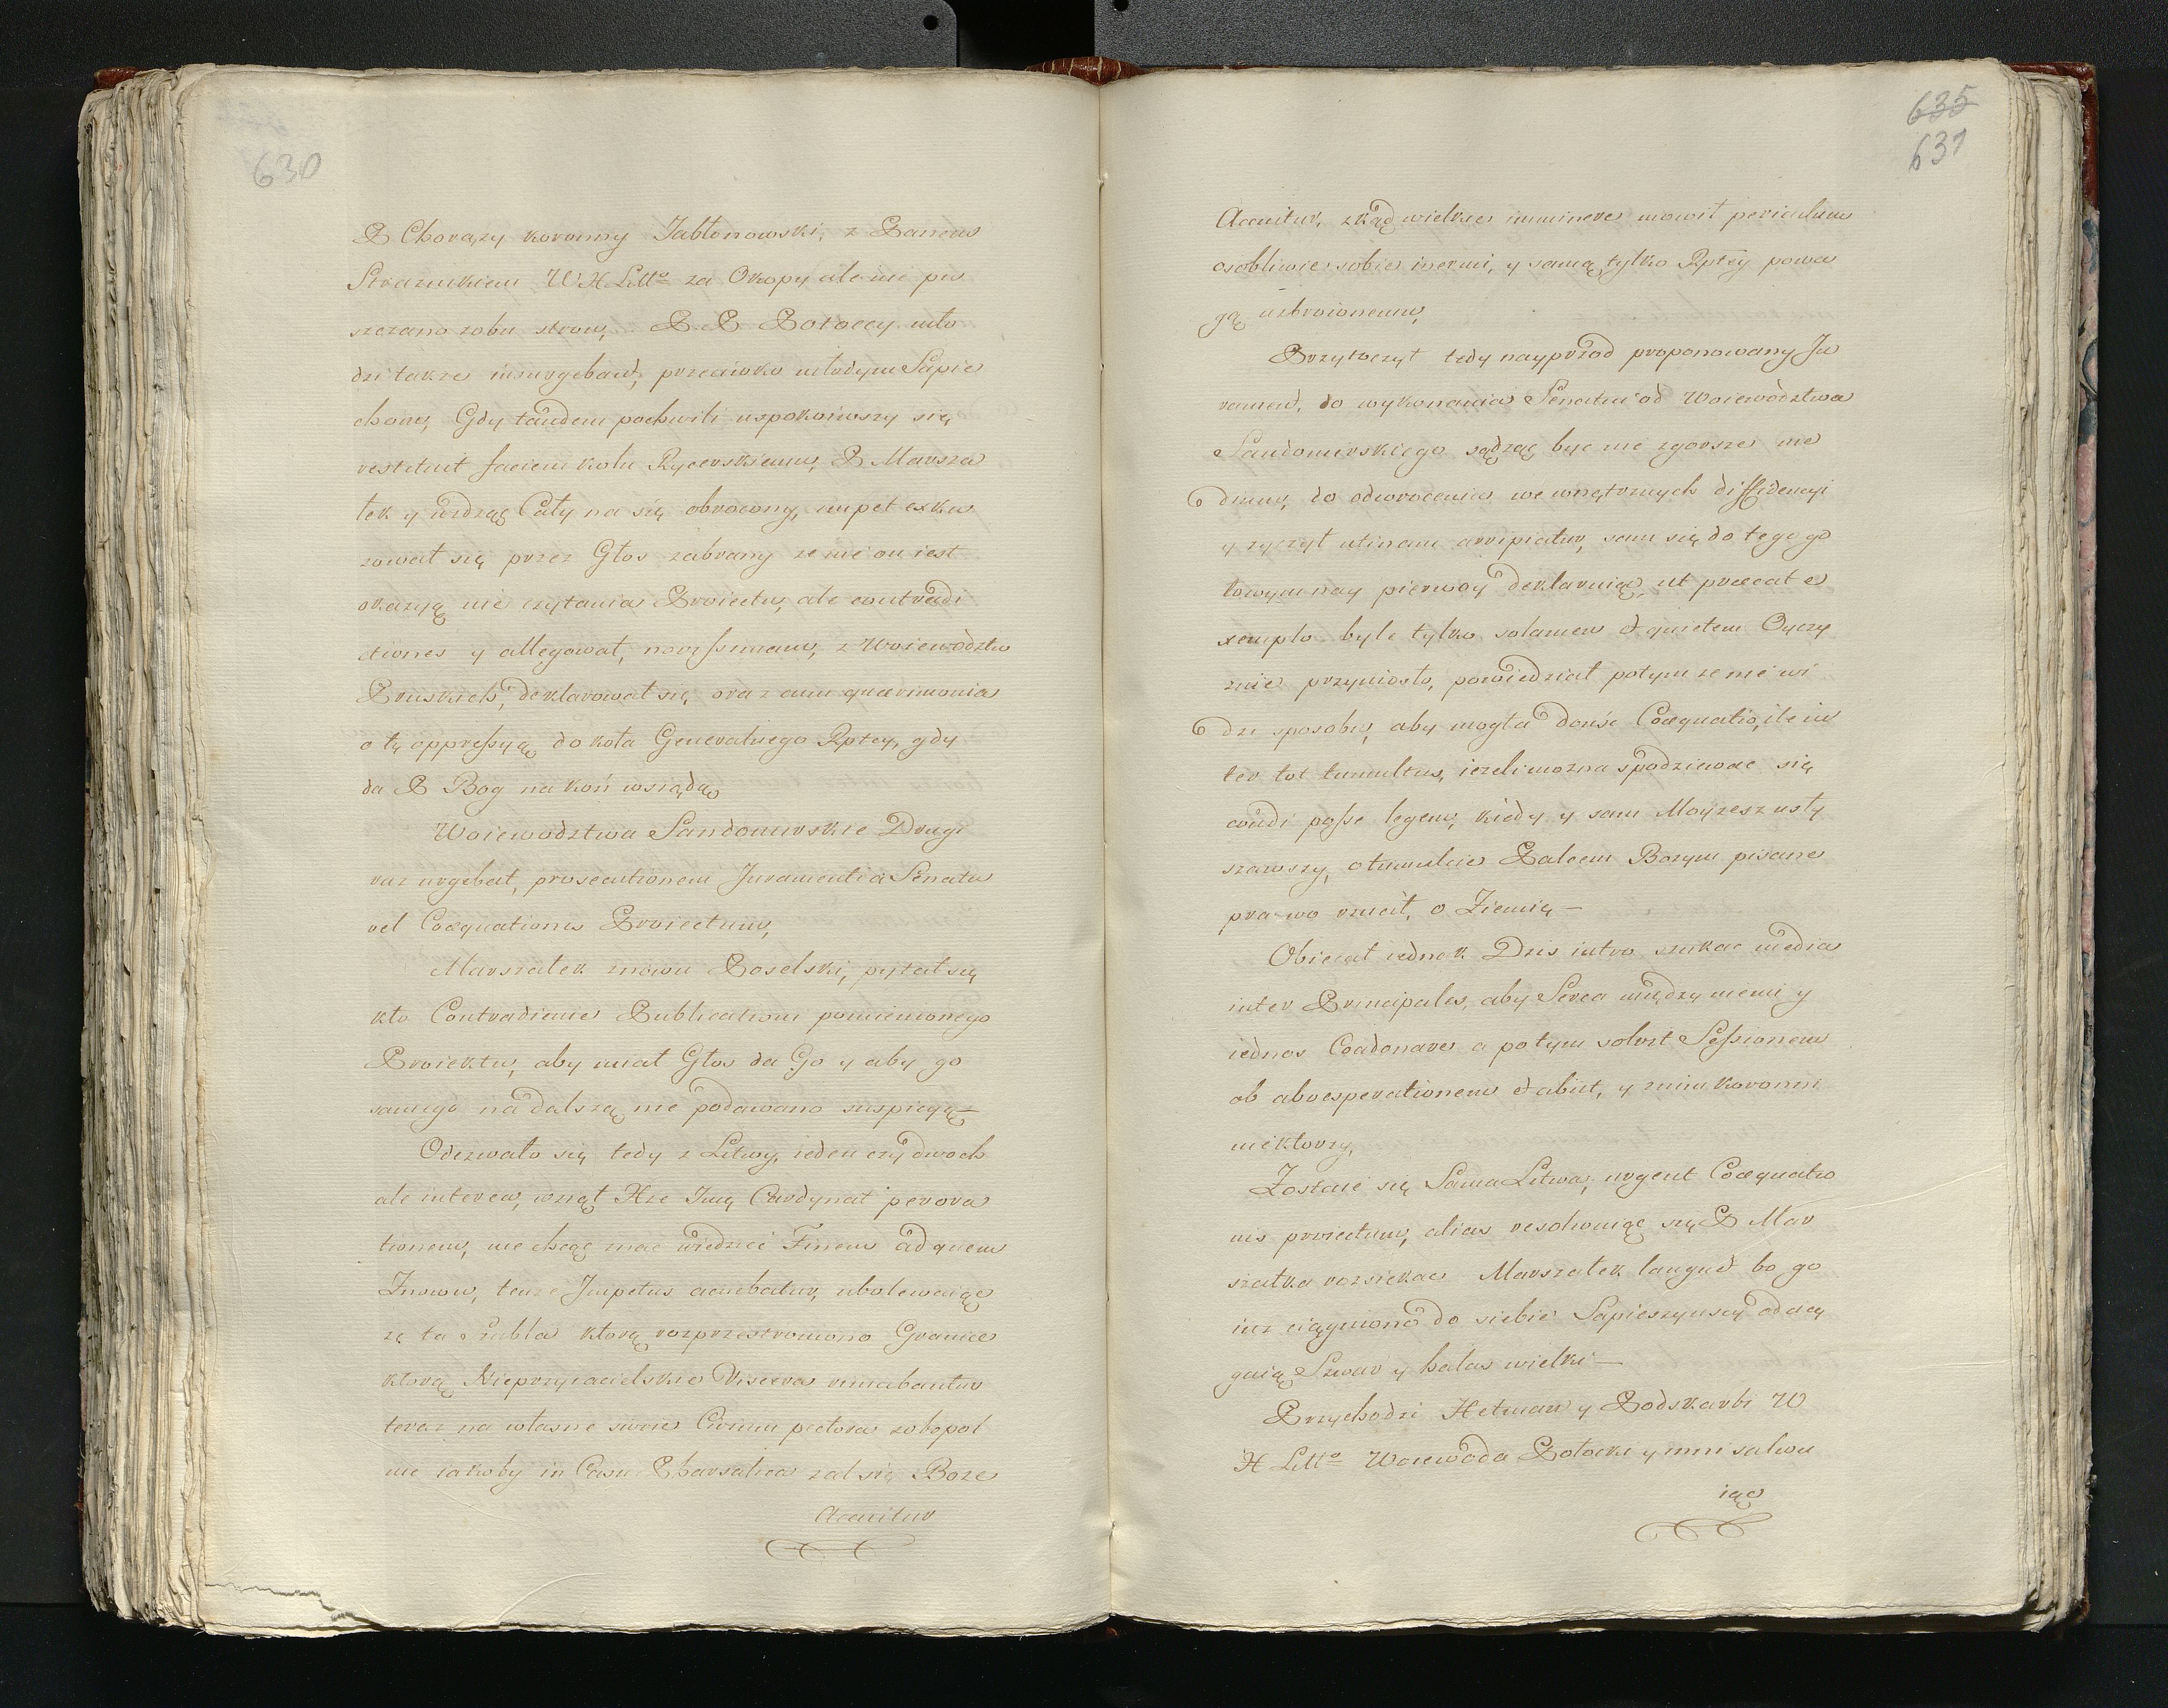 630
P Chorązy koronny Jabłonowski, z Panem
Straznikiem W X Litto za Okopy ale nie pu
szczano zobu stron, P. P Potoccy mło
dzi takze insurgebant, przeciwko młodym Sapie
chom, Gdy tandem pochwili uspokoiwszy się
restituit faciem kołu Rycerskiemu, P Marsza
łek y widząc Cały na się obrocony, impet exku
zował się przez Głos zabrany ze nie on iest
okazyą nie czytania Proiectu, ale contradi
ctiones y allegował, novissimam, z Woiewodztw
Pruskich, deklarował się oraz cum quærimonia
o tę oppressyą do koła Generalnego Rptey, gdy
da P Bog na koń wsiądą
Woiewodztwa Sandomirskie Drugi
raz urgebat, prosecutionem Juramenti a Senatu
vel Coæquationis Proiectum,
Marszałek znowu Poselski, pytał się
kto Contradicuie Publicationi pomienionego
Proiektu, aby miał Głos da Go y aby go
samego na dalszą nie podawano suspicyą —
Odezwało się tedy z Litwy, ieden czy dwoch
ale interea, wziął Xze Jmę Cardynał perora
tionem, nie chcąc znac wiedziec Finem ad quem
Znowu, tenze Impetus acuebatur, ubolewaiąc
zę ta Szabla ktorą rozprzestroniono Granice
ktorą Nieprzyiacielskie Viscera rimabantur
teraz na własne swoie Civium pectora zobopol
nie iakoby in Casu Pharsalica zal się Boze
Acuitur
635
631
Acuitur, zkąd wielkie imminere mowił periculum
osobliwie sobie inermi, y samą tylko Rptey powa
gą uzbroionemu,
Przytoczył tedy nayprzod proponowany Ju
rament, do wykonania Senatui od Woiewodztwa
Sandomirskiego sądząc byc nie zgorsze me
dium, do odwrocenia wewnętrznych diffidencyi
y zyczył utinam arripiatur, sam się do tego go
towym nay pierwoy deklaruiąc, ut præeat e
xemplo byle tylko solamen & quietem Oyczy
znie przyniosło, powiedział potym ze nie wi
dzi sposobu, aby mogła donsc Coæquatio, ile in
ter tot tumultus, iezeli mozna spodziewac się
cudi posse legem, kiedy y sam Moyzesz usły
szawszy, o tumulcie Palcem Bozym pisane
prawo rzucił, o Ziemię —
Obiecał iednak Dzis iutro szukac media
inter Principales, aby Serca między niemi y
iednos Coadonare a potym solvit Sessionem
ob advesperationem & abiit, y z nim koronni
niektorzy,
Zostaie się Sama Litwa, urgent Coæquatio
nis proiectum, alias resolwuiąc się P Mar
szałka rozsiekac Marszałek languet bo go
iuz ciągniono do siebie Sapieszyńscy odcią
gaią Szwar y hałas wielki —
Przychodzi Hetman y Podskarbi W
X Litto Woiewoda Potocki y inni salwu
iąc